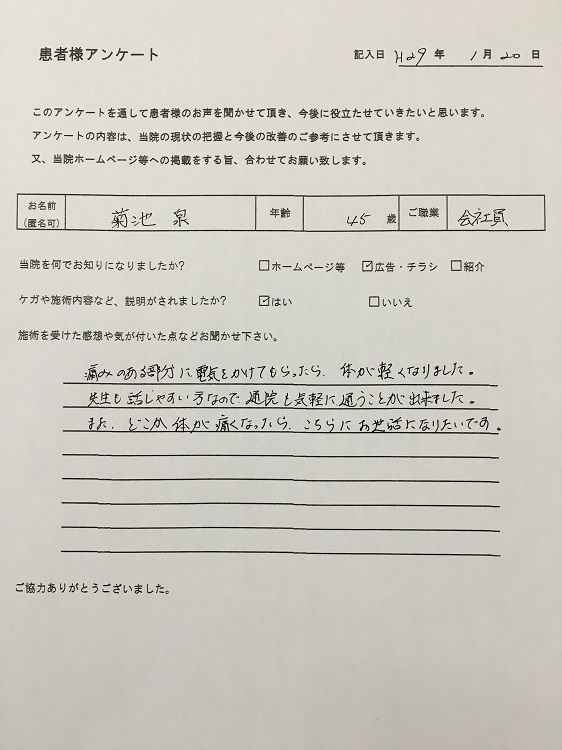 患者様アンケート
記入日 H29 年 1 月 20 日
このアンケートを通して患者様のお声を聞かせて頂き、今後に役立たせていきたいと思います。
アンケートの内容は、当院の現状の把握と今後の改善のご参考にさせて頂きます。
又、当院ホームページ等への掲載をする旨、合わせてお願い致します。
お名前(匿名可) 菊池 泉 年齢 45 歳 ご職業 会社員
当院を何でお知りになりましたか? □ホームページ等 ☑広告・チラシ □紹介
ケガや施術内容など、説明がされましたか? ☑はい □いいえ
施術を受けた感想や気が付いた点などお聞かせ下さい。
痛みのある部分に電気をかけてもらったら、体が軽くなりました。
先生も話しやすい方なので、通院も気軽に通うことが出来ました。
また、どこか体が痛くなったら、こちらにお世話になりたいです。
ご協力ありがとうございました。